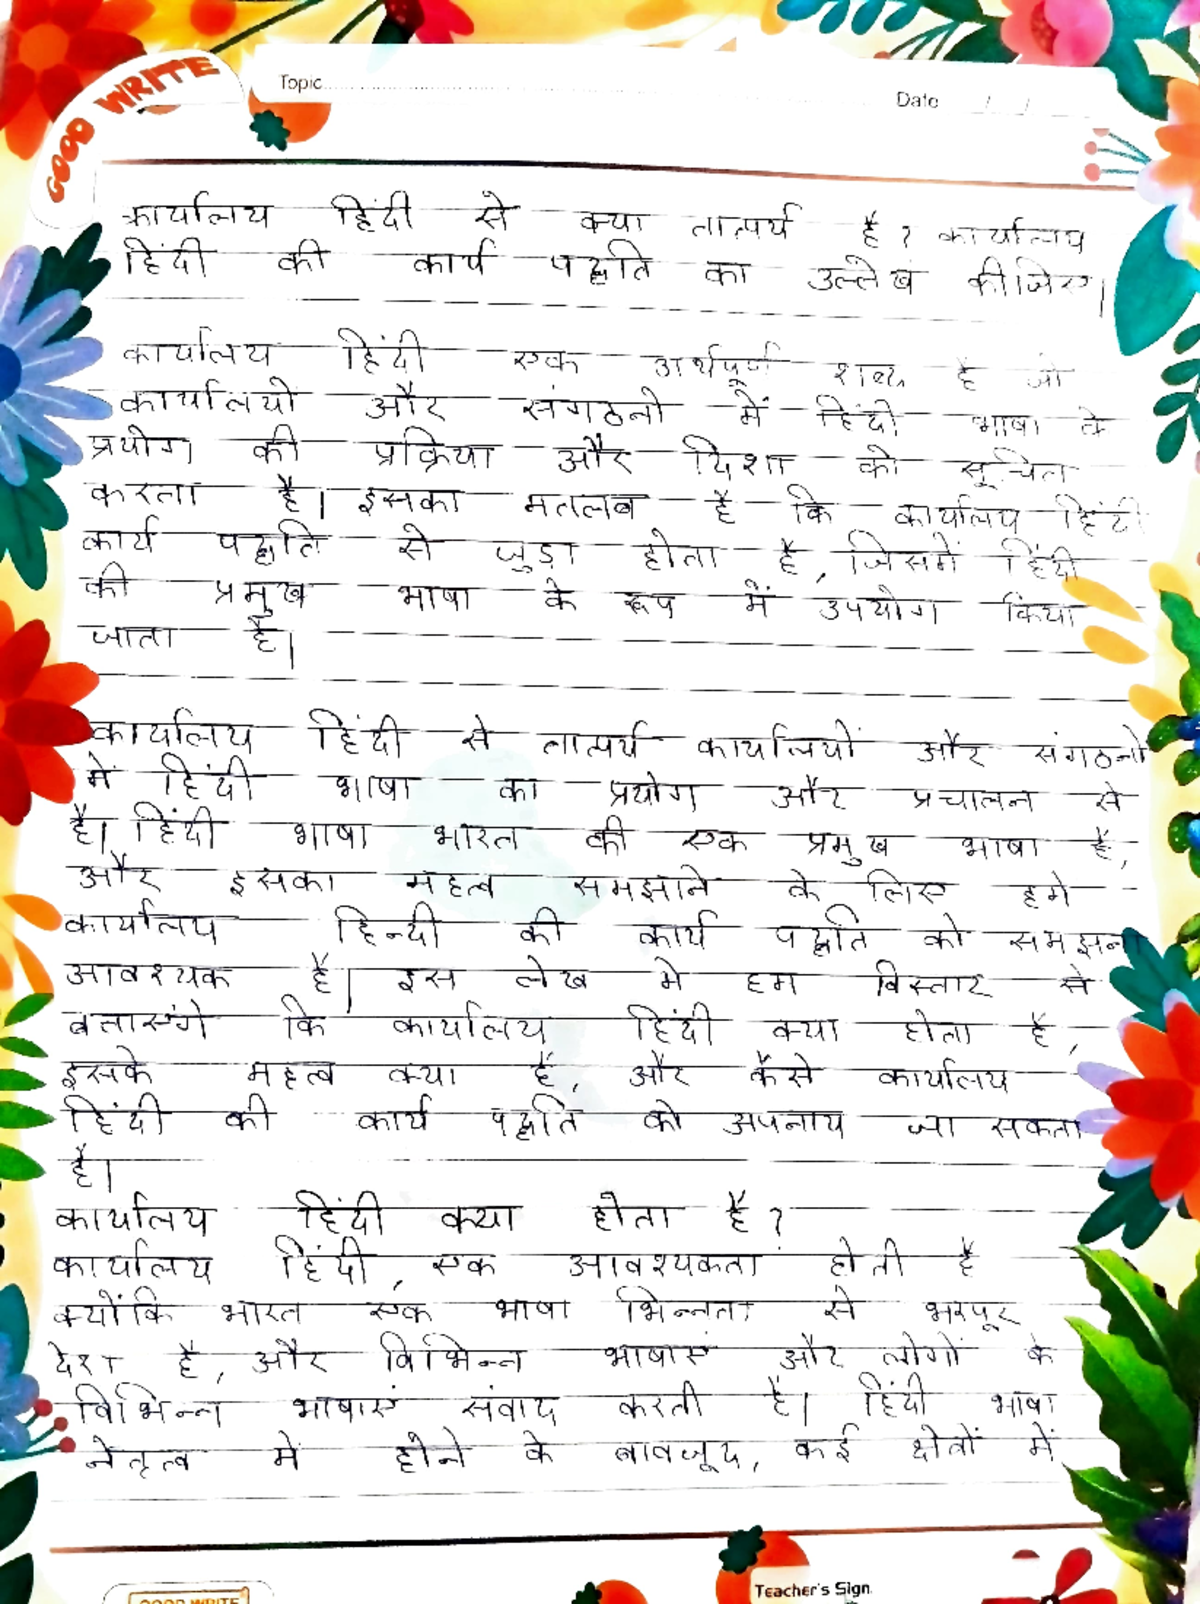 GOOD WRITE
Topic
Date / /
कार्यालय हिंदी से क्या तात्पर्य है? कार्यालय
हिंदी की कार्य पद्धति का उल्लेख कीजिए।
कार्यालय हिंदी एक अर्थपूर्ण शब्द है जो
कार्यालयो और संगठनो में हिंदी भाषा के
प्रयोग की प्रक्रिया और दिशा को सूचित
करता है। इसका मतलब है कि कार्यालय हिंदी
कार्य पद्धति से जुड़ा होता है, जिसमें हिंदी
को प्रमुख भाषा के रूप में उपयोग किया
जाता है।
कार्यालय हिंदी से तात्पर्य कार्यालयों और संगठनो
में हिंदी भाषा का प्रयोग और प्रचालन से
है। हिंदी भाषा भारत की एक प्रमुख भाषा है,
और इसका महत्व समझाने के लिए हमे
कार्यालय हिन्दी की कार्य पद्धति को समझना
आवश्यक है। इस लेख मे हम विस्तार से
बताएंगे कि कार्यालय हिंदी क्या होता है,
इसके महत्व क्या हैं, और कैसे कार्यालय
हिंदी की कार्य पद्धति को अपनाय जा सकता
है।
कार्यालय हिंदी क्या होता है?
कार्यालय हिंदी, एक आवश्यकता होती है
क्योंकि भारत एक भाषा भिन्नता से भरपूर
देश है, और विभिन्न भाषाएं और लोगों के
विभिन्न भाषाएं संवाद करती हैं। हिंदी भाषा
नेतृत्व मे होने के बावजूद, कई क्षेत्रों में
GOOD WRITE
Teacher's Sign.